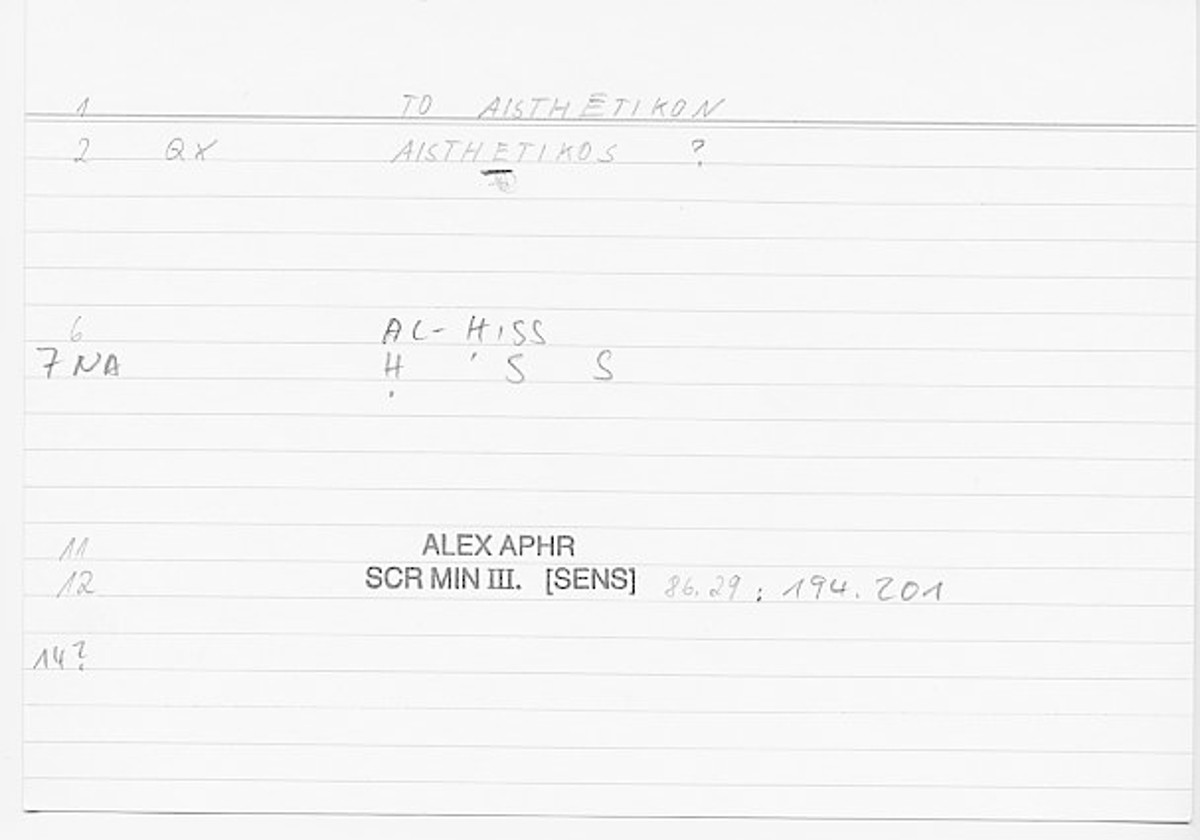 1 TO AISTHĒTIKON
2 QX AISTHETIKOS ?
6 AL-HISS
7 NA Ḥ ' S S
11 ALEX APHR
12 SCR MIN III. [SENS] 86.29 : 194.201
14?